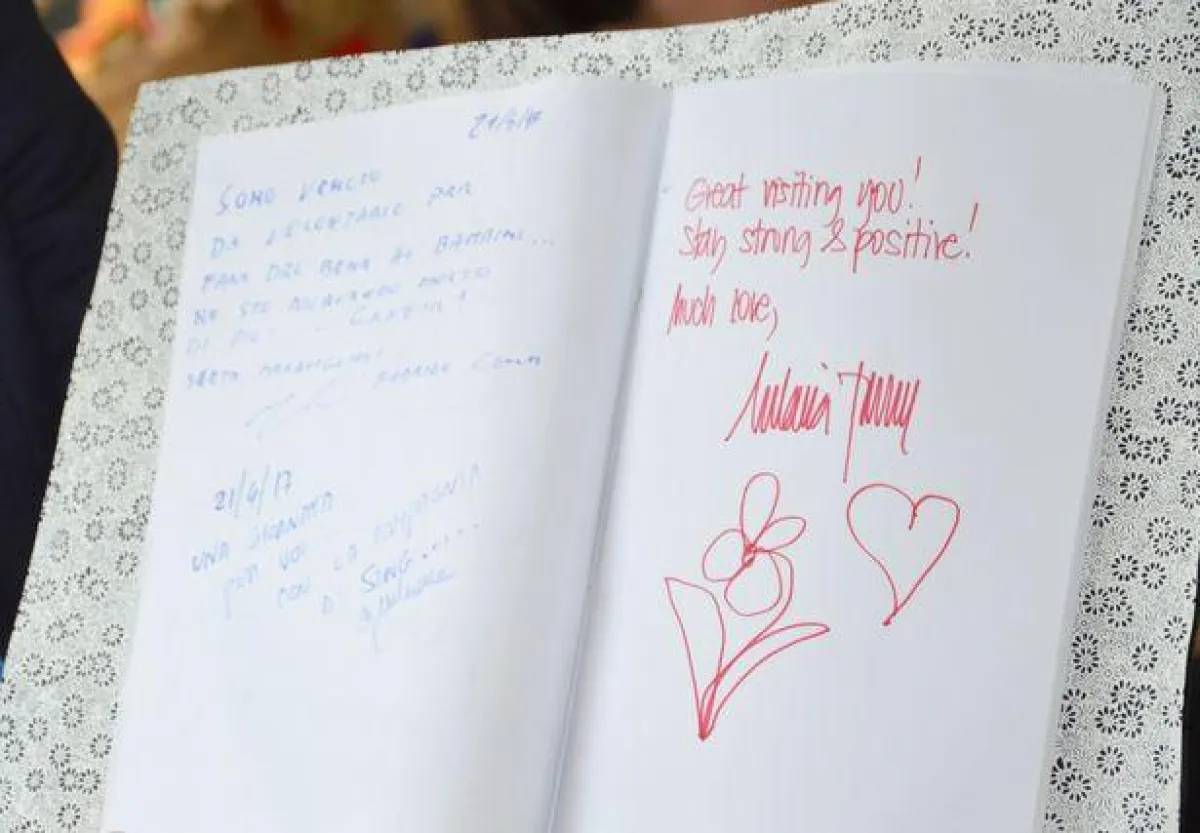 SONO VENUTO
DA VOLONTARIO PER
FARE DEL BENE AI BAMBINI...
NE STO RICEVENDO MOLTO
DI PIÙ ... GRAZIE!
21/4/17
UNA GIORNATA
PER VOI ...
CON LA
DI SING .....
Great visiting you!
stay strong & positive!
Much love,
Melania Trump